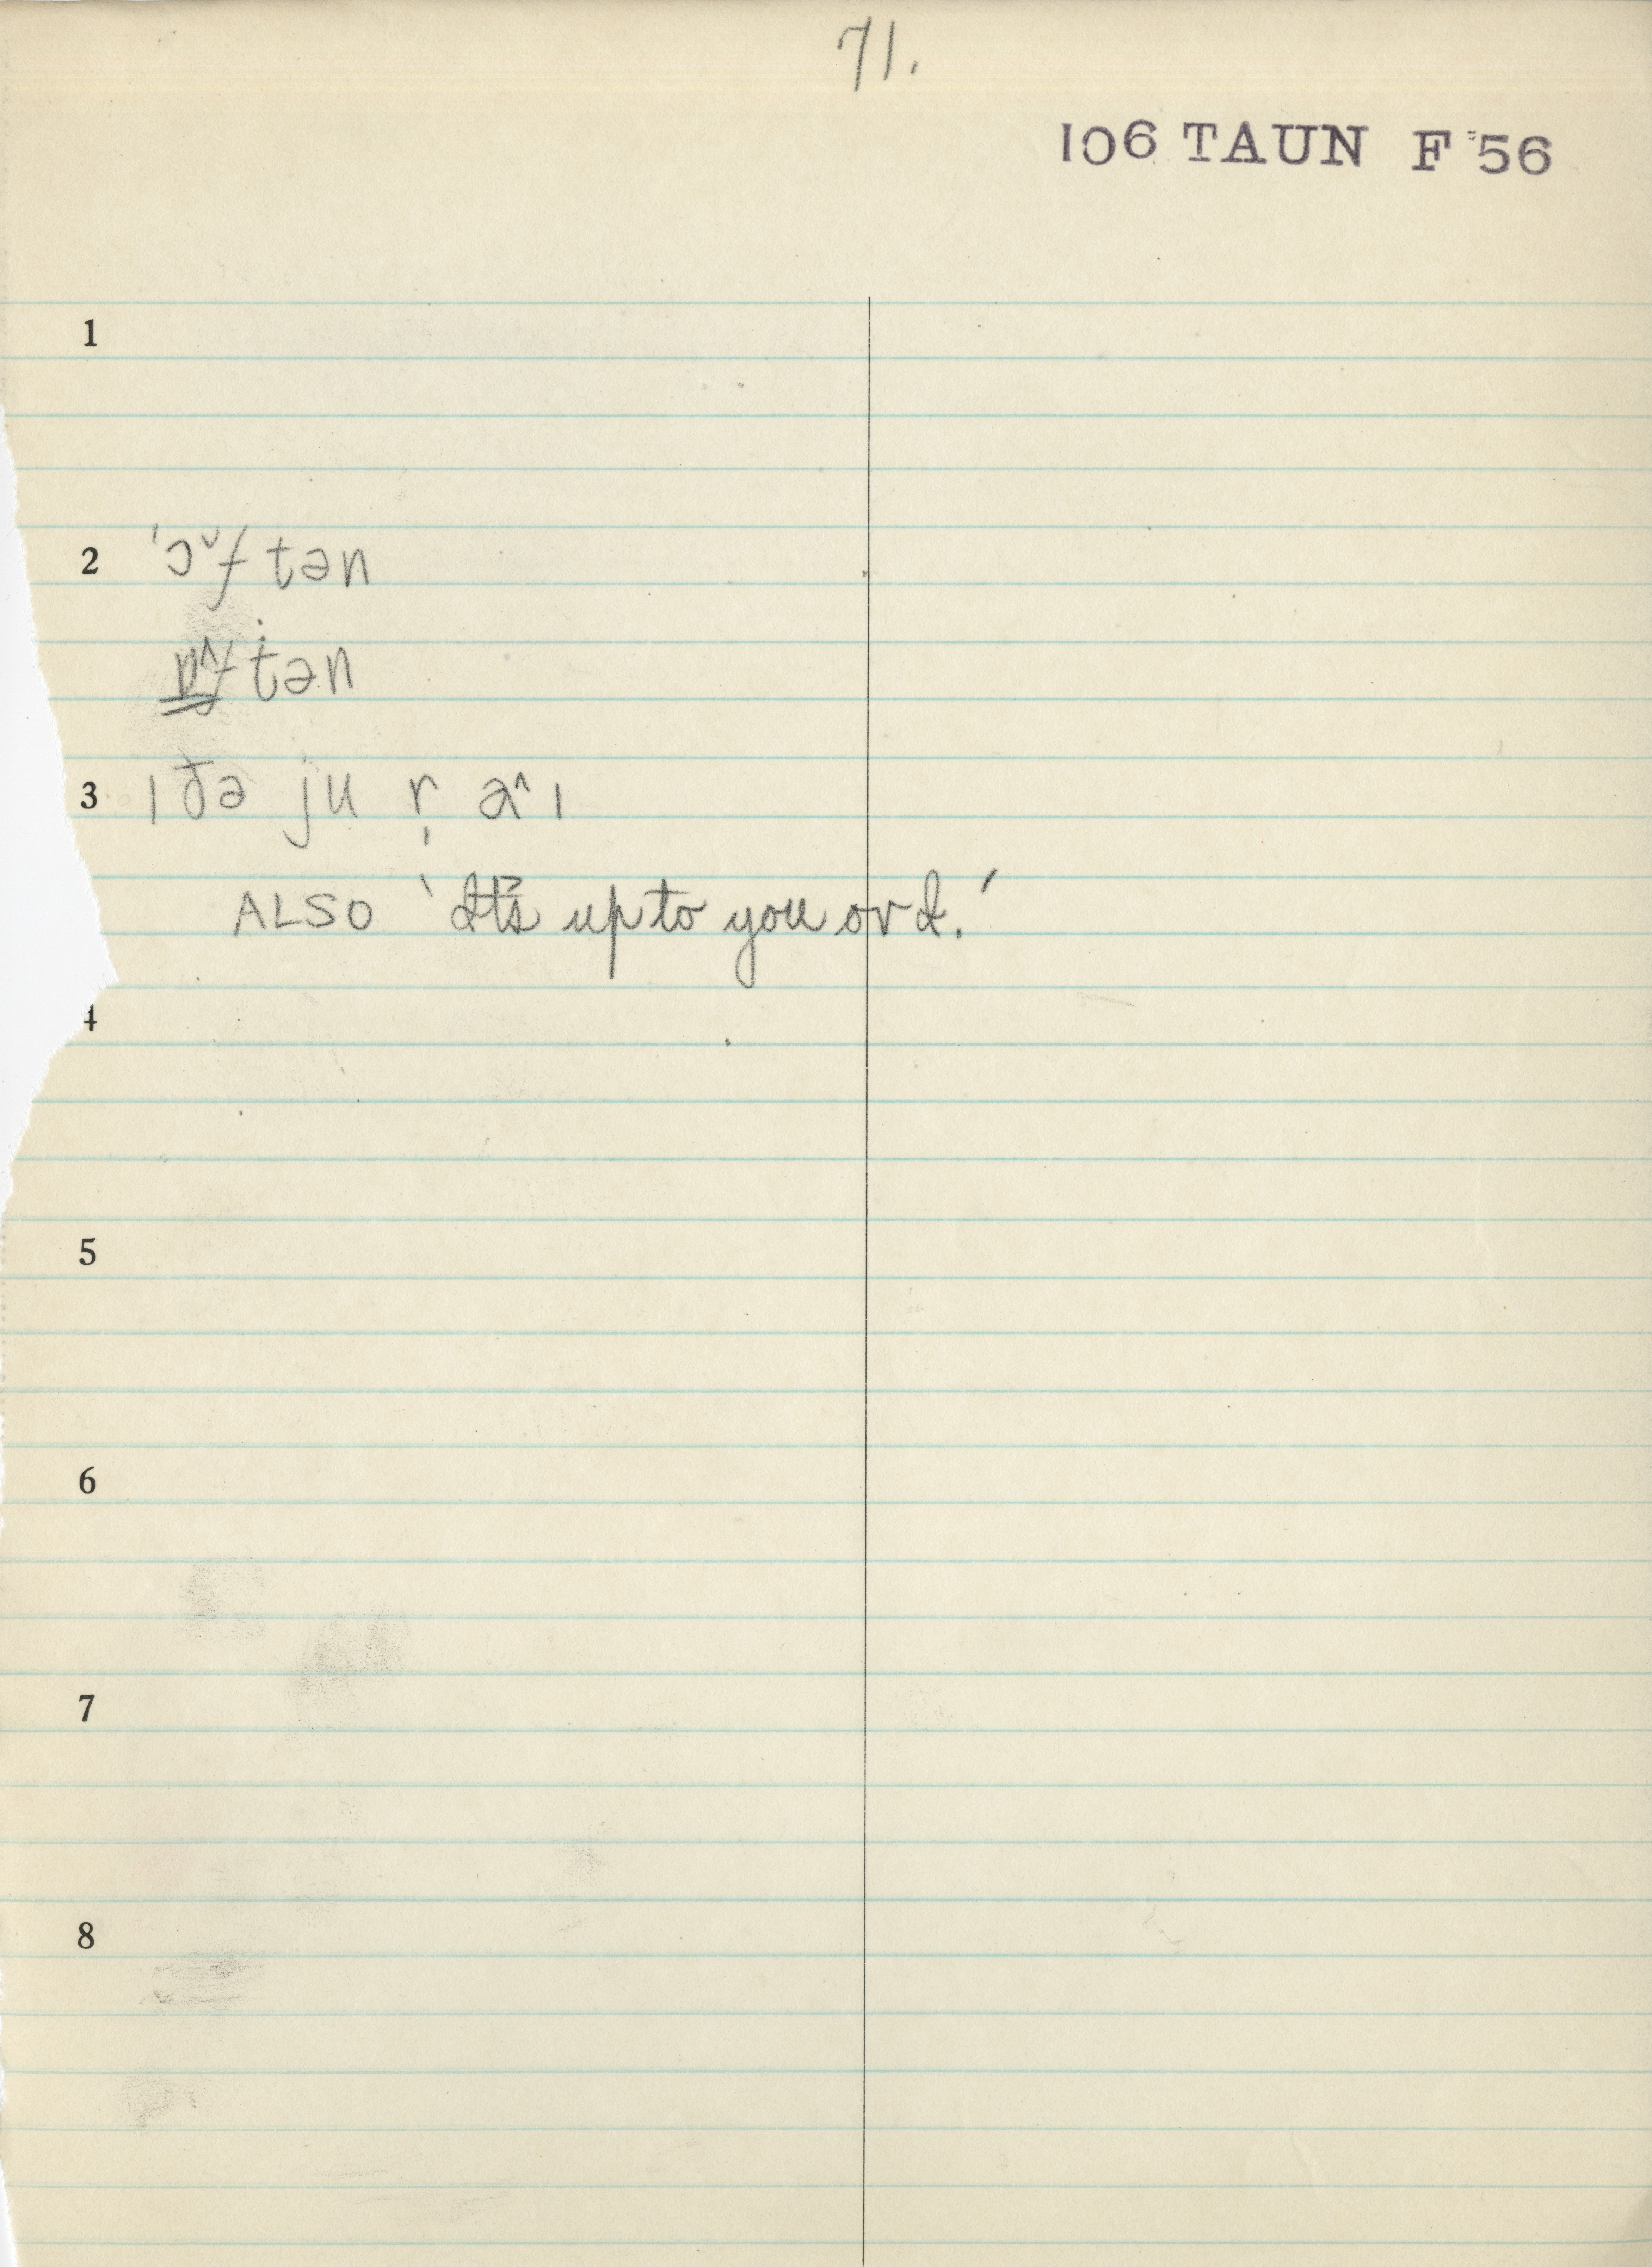 71.
106 TAUN F 56
1
2 'ɔ˅f tən
ɒ˄f tən
3 ɪ ðə ju r̩ a˄ɪ
ALSO 'It's up to you or I.'
4
5
6
7
8